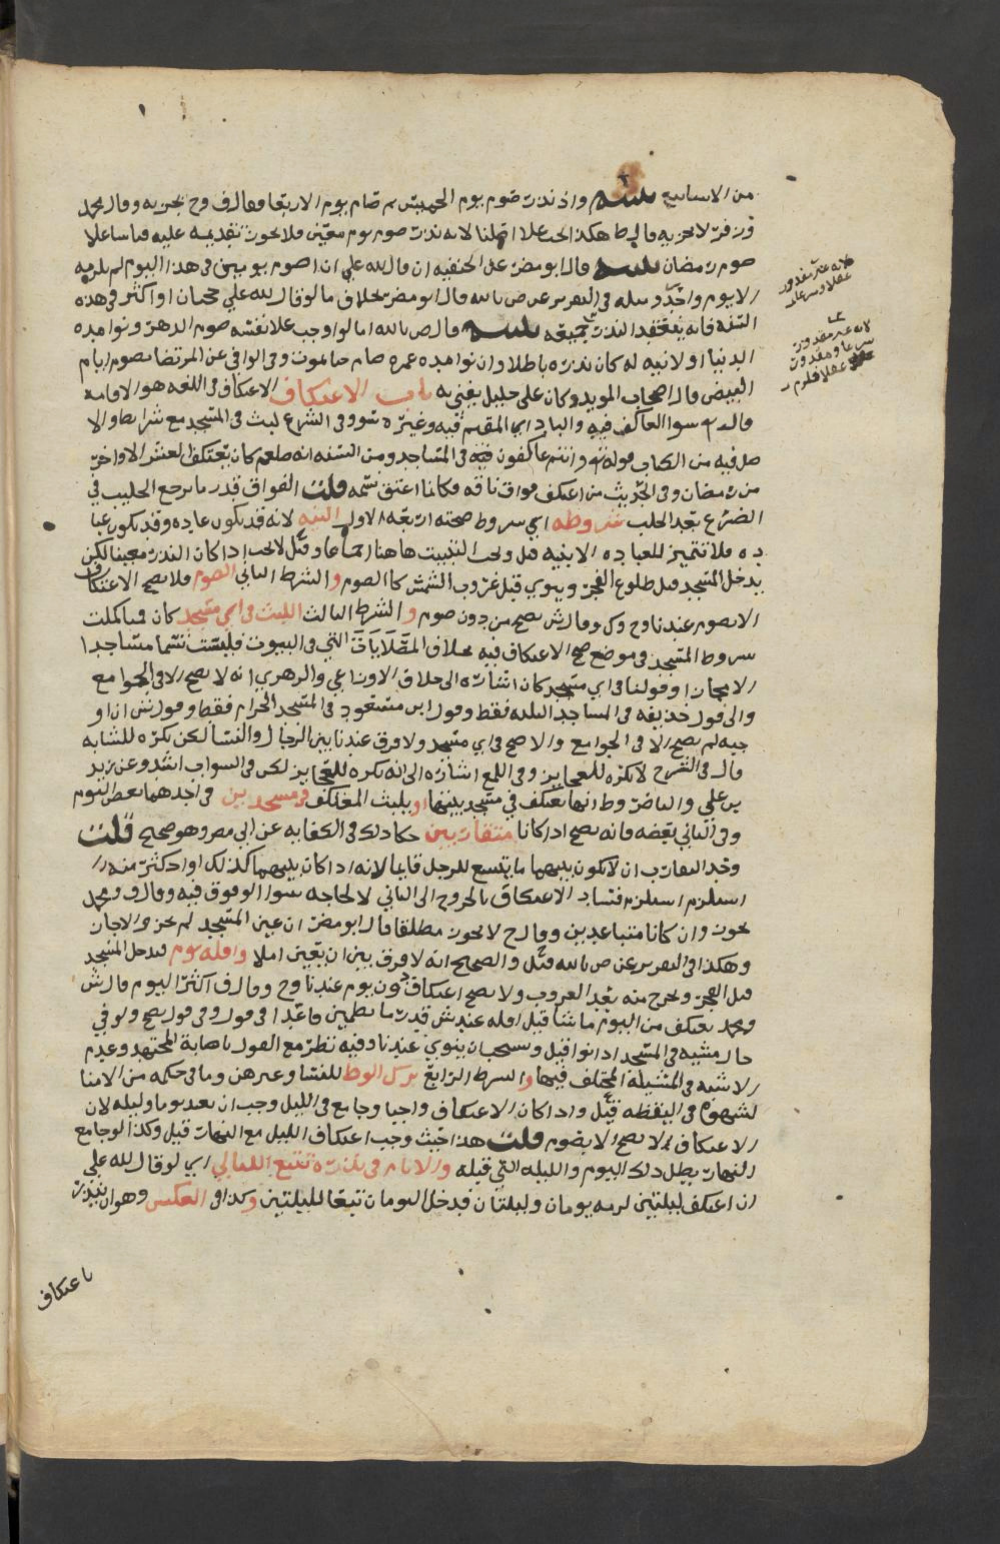 من الاسابيع تنبيه واذ نذر صوم يوم الخميس ثم صام يوم الاربعا فقال ف وح يجزيه وقال محمد
وزفر لا يجزيه قال ط هكذا
صوم رمضان تنبيه قال ابو مضر عند الحنفيه ان قال لله علي ان اصوم يومين في هذا اليوم لم يلزمه
الا يوم واحد ومثله في التقرير عن ص بالله قال ابو مضر بخلاف ما لو قال لله علي حجتان او اكثر في هذه
السنه فانه ينعقد النذر جميعه تنبيه قال ص بالله اما لو اوجب علا نفسه صوم الدهر ونوا مده
الدنيا او لا نيه له كان نذره باطلا وان نوا مده عمره صام حتا يموت وفي الوافي عن المرتضا يصوم ايام
البيض قال اصحاب المويد وكان علي خليل يفتي به باب الاعتكاف الاعتكاف في اللغه هو الاقامه
قال تع سوا العاكف فيه والباد اي المقيم فيه وغيره سوو في الشرع لبث في المسجد مع شرايط والا
صل فيه من الكتاب قوله تع وانتم عاكفون فيه في المساجد ومن السنه انه صلعم كان يعتكف العشر الاواخر
من رمضان وفي الحديث من اعتكف فواق ناقه فكانما اعتق نسمه قلت الفواق قدر ما يرجع الحليب في
الضرع بعد الحلب شروطه اي شروط صحته اربعه الاول النيه لانه قد يكون عاده وقد يكون عبا
ده فلا تتميز للعباده الا بنيه قيل ويجب التبييت هاهنا اجماعا وقيل لا يجب اذا كان النذر معينا لكن
يدخل المسجد قبل طلوع الفجر وينوي قبل غروب الشمس كالصوم و الشرط الثاني الصوم فلا يصح الاعتكاف
الا بصوم عندنا وح وك وقال ش يصح من دون صوم و الشرط الثالث اللبث في اي مسجد كان فما كملت
شروط المسجد في موضع صح الاعتكاف فيه بخلاف المصلايات التي في البيوت فليست تسما مساجدا
الا مجازا وقولنا في اي مسجد كان اشاره الى خلاف الاوزاعي والزهري انه لا يصح الا في الجوامع
والى قول حذيفه في المساجد الثلثه فقط وقول ابن مسعود في المسجد الحرام فقط وقول ش ان او
جبه لم يصح الا في الجوامع والا صح في اي مسجد ولا فرق عندنا بين الرجال والنسا لكن يكره للشابه
قال في الشرح لا يكره للعجايز وفي اللمع اشاره الى انه يكره للعجايز لكن في الشواب اشد وعن زيد
بن علي والناصر وط انها تعتكف في مسجد بيتها او يلبث المعتكف في مسجدين في احدهما بعض اليوم
وفي الثاني بعضه فانه يصح اذا كانا متقاربين حكا ذلك في الكفايه عن ابي مضر وهو صحيح قلت
وحد التقارب ان لا يكون بينهما ما يتسع للرجل قايما لانه اذا كان بينهما كذلك او اكثر منه
استلزم استلزم فساد الاعتكاف بالخروج الى الثاني لا لحاجه سوا الوقوف فيه وقال ف ومحمد
يجوز وان كانا متباعدين وقال ح لا يجوز مطلقا قال ابو مضر ان عين المسجد لم يجز والا جاز
وهكذا في التقرير عن ص بالله قيل والصحيح انه لا فرق بين ان يعين ام لا واقله يوم فيدخل المسجد
قبل الفجر ويخرج منه بعد الغروب ولا يصح اعتكاف دون يوم عندنا وح وقال ف اكثر اليوم قال ش
ومحمد يعتكف من اليوم ما شا قيل اقله عند ش قدر ما يطمين قاعدا في قول وفي قول يصح ولو في
حال مشيه في المسجد اذا نوا قيل ويستحب ان ينوي عندنا وفيه نظر مع القول باصابة المجتهد وعدم
الاشبه في المسئلة المختلف فيها و الشرط الرابع ترك الوطي للنسا وغيرهن وما في حكمه من الامنا
لشهوة في اليقظه قيل واذا كان الاعتكاف واجبا وجامع في الليل وجب ان يعيد يوما وليله لان
الاعتكاف لا يصح الا بصوم قلت هذا حيث وجب اعتكاف الليل مع النهار قيل وكذا لو جامع
النهار يبطل ذلك اليوم والليله التي قبله والايام في نذره تتبع الليالي اي لو قال لله علي
ان اعتكف ليلتين لزمه يومان وليلتان فيدخل اليومان تبعا لليلتين وكذا في العكس وهو ان ينذر
باعتكاف
لانه غير مقدور
عقلا وشرعا
لانه غير مقدور
شرعا ومقدور
عقلا فلزم